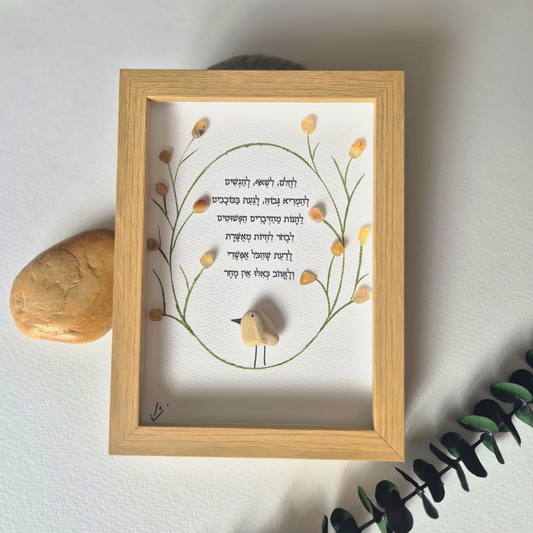 לַחֲלֹם, לִשְׁאֹף, לְהַגְשִׁים
לְהַמְרִיא גָּבוֹהַּ, לָגַעַת בַּכּוֹכָבִים
לֵהָנוֹת מֵהַדְּבָרִים הַפְּשׁוּטִים
לִבְחֹר לִהְיוֹת מְאֻשֶּׁרֶת
לָדַעַת שֶׁהַכֹּל אֶפְשָׁרִי
וְלֶאֱהֹב כְּאִלּוּ אֵין מָחָר